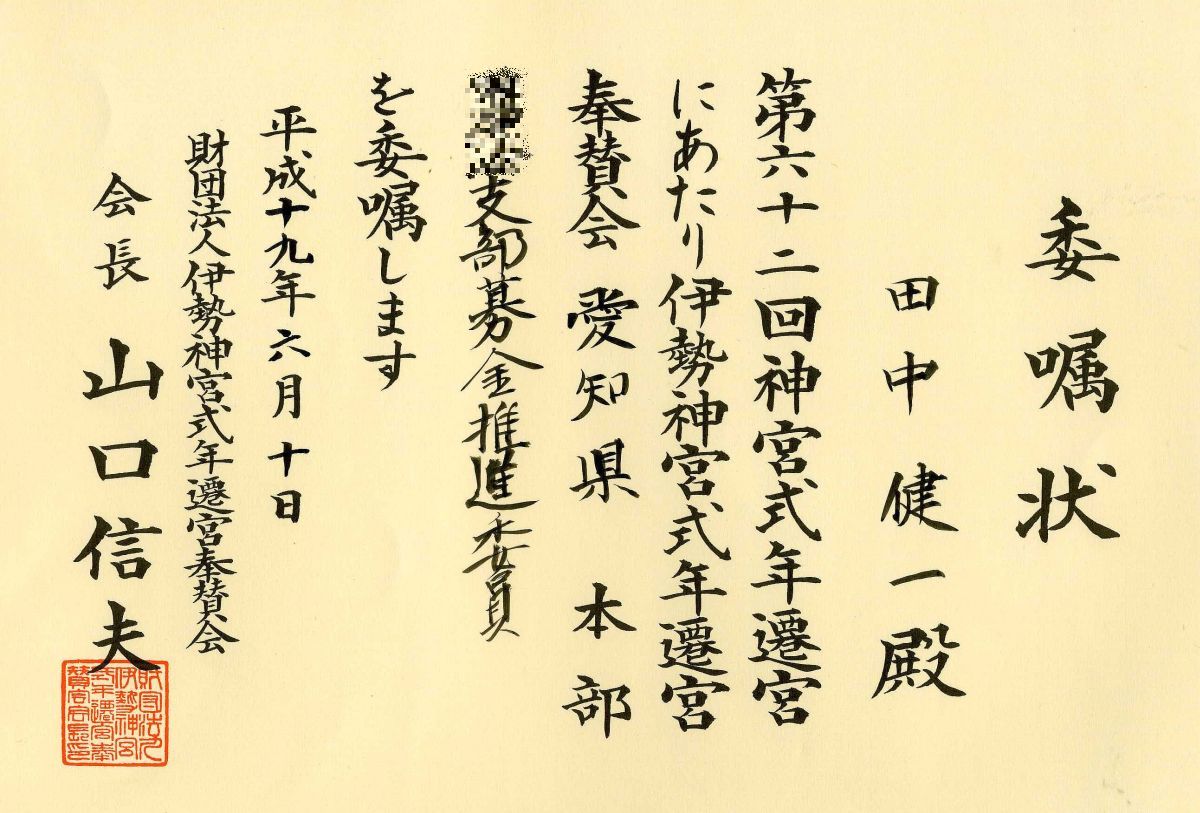 委嘱状
田中健一殿
第六十二回神宮式年遷宮
にあたり伊勢神宮式年遷宮
奉賛会愛知県本部
支部募金推進委員
を委嘱します
平成十九年六月十日
財団法人伊勢神宮式年遷宮奉賛会
会長 山口信夫
財団法人
伊勢神宮
式年遷宮奉
賛会会長印